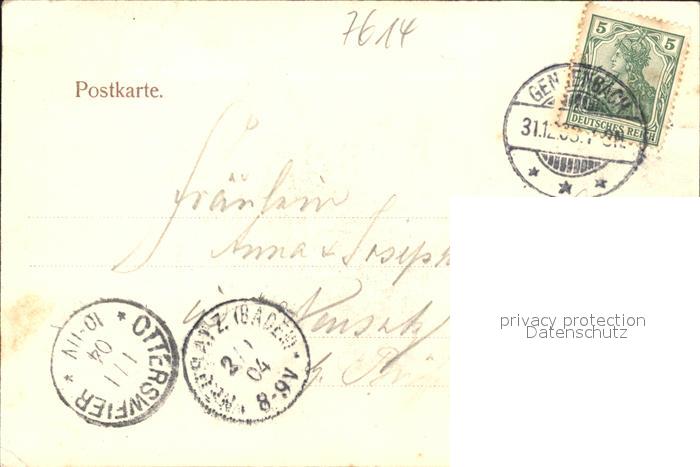 7614
Postkarte.
5 5
DEUTSCHES REICH
GENGENBACH
31.12.03.
Fräulein
Anna & Joseph
in Neusatz
OTTERSWEIER
1 1 04 10-11V
NEUSATZ (BADEN)
2 1 04 8-9V
privacy protection
Datenschutz